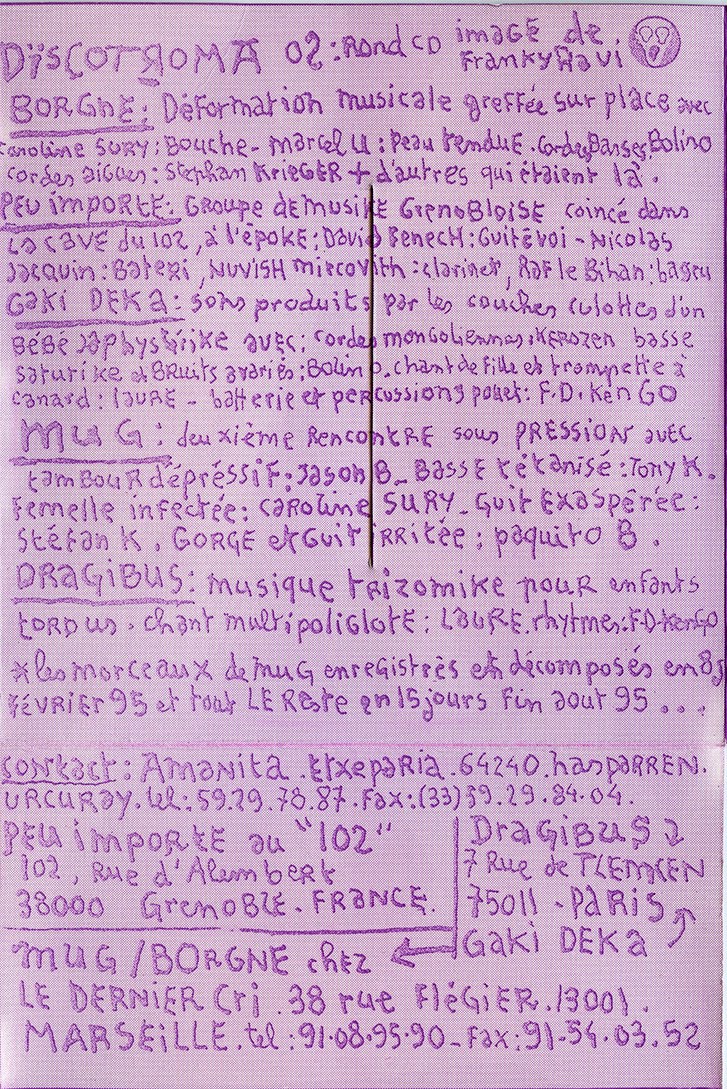 DiSCOTROMA 02 : Rond CD image de FrankyRavi
BORGNE : Déformation musicale greffée sur place avec
caroline SURY : Bouche - marcel U : Peau tendue . Cordes Basses, Bolino
cordes aigues : Stephan KRIEGER + d'autres qui étaient là .
PEU iMPORTE : GROUPE dE MUSiKE GRENOBLOiSE coincé dans
LA CAVE du 102 , à l'épOKE : David BENECH : Guitévoi - Nicolas
Jacquin : Bateri , NUViSH mircovith : clarinet , Raf le Bihan : basseu
GaKi DEKa : sons produits par les couches culottes d'un
BéBé Japhystérike avec : cordes mongoliennes , KEROZEN basse
saturike et BRuits avariés : Bolino . chant de fille et trompette à
canard : laure - batterie et percussions pouet : F.D. Ken GO
MUG : deuxième Rencontre sous PRESSION avec
tamBOUR dépréssiF : Jason B _ BASSE tétanisé : Tony K .
Femelle infectée : CAROLine SURY _ Guit Exaspérée :
Stéfan K . GORGE et Guit irritée : paquito B .
DRAGiBUS : musique trizomike pour enfants
tordus . chant multipoliglote : LAURE . rhytmes : F.D. KenGO
* les morceaux de MUG enregistrés et décomposés en 8j
FéVRiER 95 et tout LE Reste en 15 jours Fin aout 95 . . .
contact : Amanita . Etxeparia . 64240 . hasparren .
URCURAY . tel : 59.29.78.87 . Fax : (33) 59.29.84.04 .
PEU iMPORTE au "102"
102 , Rue d'Alembert
38000 GrenoBLE . FRANCE .
DragiBus
7 Rue de TLEMCEN
75011 - PARiS
GaKi DEKa
MUG / BORGNE chez
LE DERNIER Cri . 38 rue FléGiER . 13001 .
MARSEiLLE . tel : 91.08.95.90 - Fax : 91.54.03.52